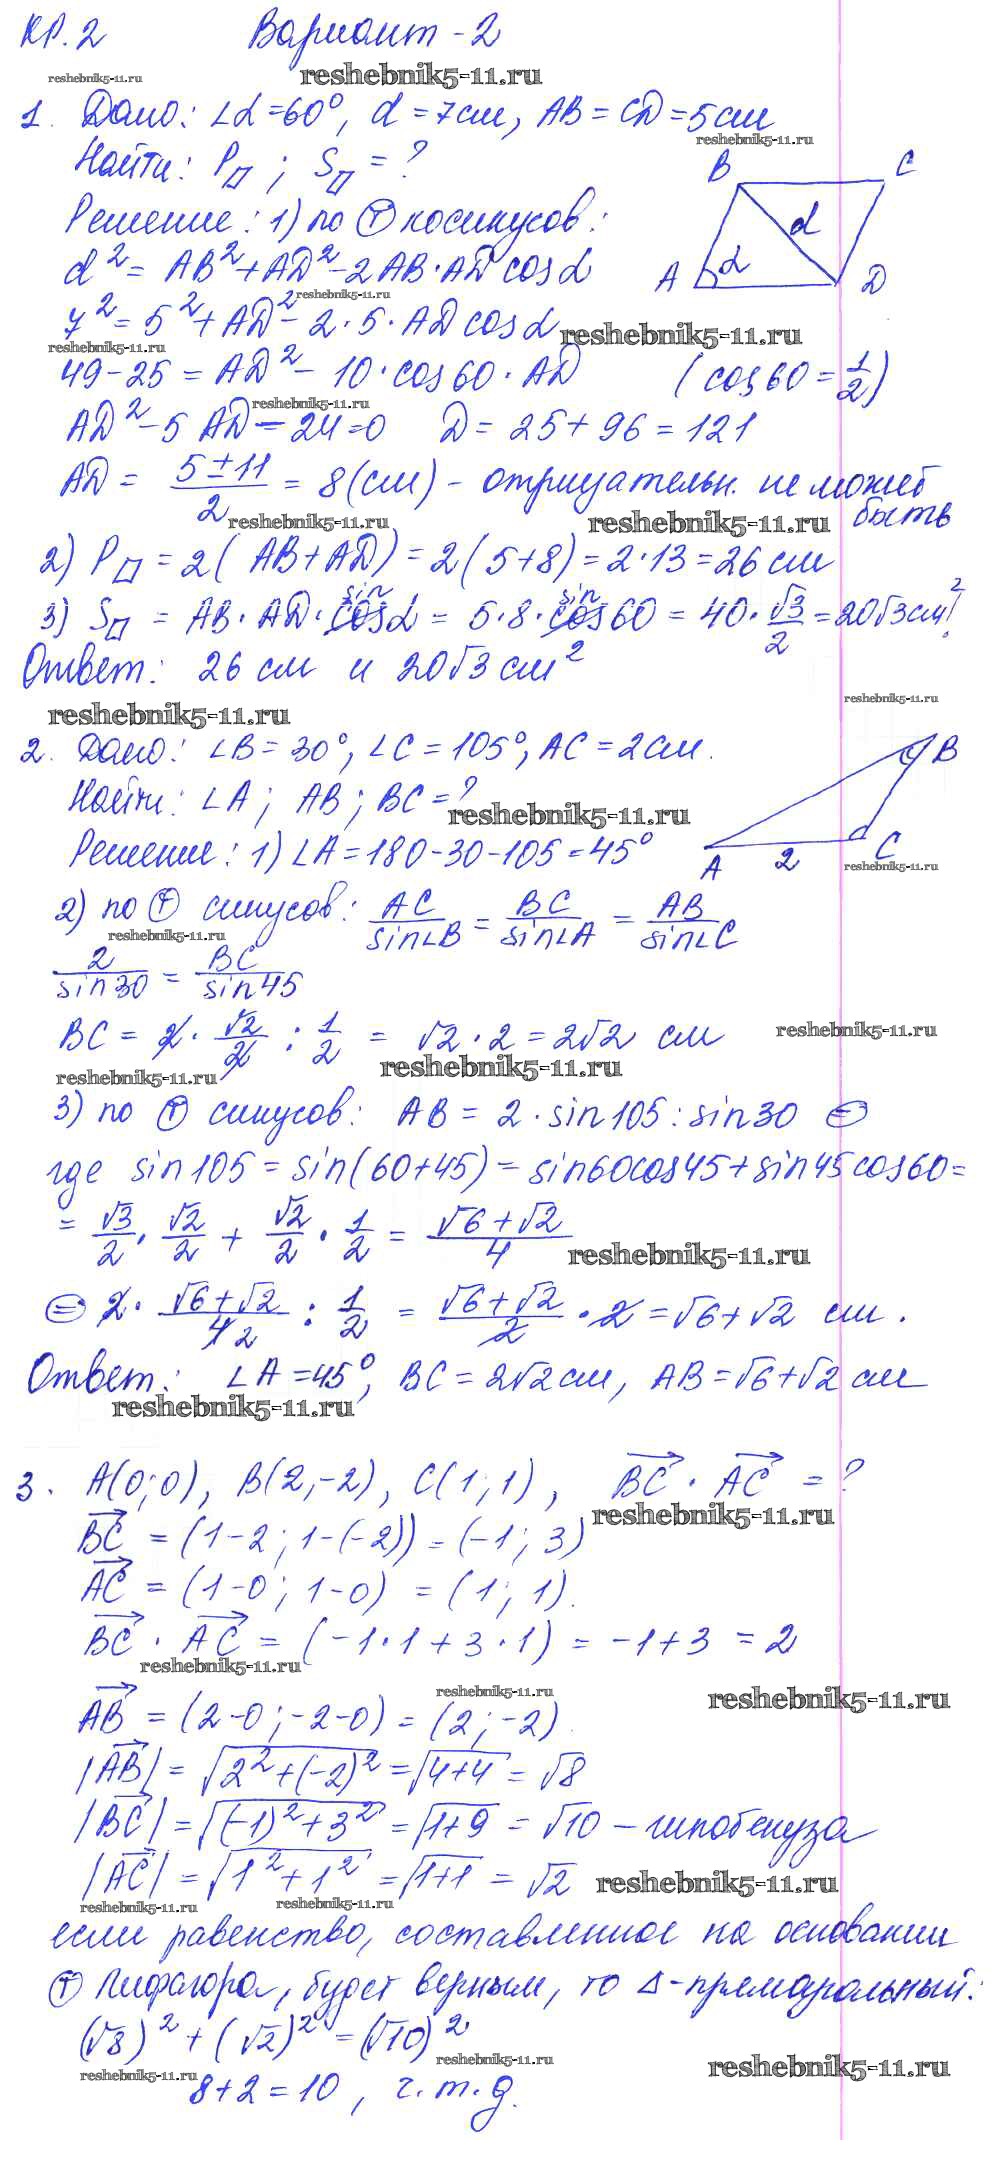 КР.2 Вариант-2
reshebnik5-11.ru reshebnik5-11.ru
1. Дано: ∠α=60°, d=7см, AB=CD=5см
reshebnik5-11.ru
Найти: P▱; S▱=?
B C
Решение: 1) по Ⓣ косинусов:
d
d²=AB²+AD²-2AB·AD cosα
A α D
reshebnik5-11.ru
7²=5²+AD²-2·5·AD cosα reshebnik5-11.ru
reshebnik5-11.ru
49-25=AD²-10·cos60·AD (cos60=1/2)
reshebnik5-11.ru
AD²-5AD-24=0 D=25+96=121
AD=(5±11)/2=8(см) - отрицательн. не может
быть
reshebnik5-11.ru reshebnik5-11.ru
2) P▱=2(AB+AD)=2(5+8)=2·13=26 см
sin sin
3) S▱=AB·AD·cosα=5·8·cos60=40·√3/2=20√3см².
Ответ: 26см и 20√3см²
reshebnik5-11.ru
reshebnik5-11.ru
2. Дано: ∠B=30°, ∠C=105°, AC=2см.
B
Найти: ∠A; AB; BC=?
reshebnik5-11.ru
Решение: 1) ∠A=180-30-105=45°
A 2 C
reshebnik5-11.ru
2) по Ⓣ синусов: AC/sin∠B=BC/sin∠A=AB/sin∠C
reshebnik5-11.ru
2/sin30=BC/sin45
BC=2·√2/2:1/2=√2·2=2√2 см
reshebnik5-11.ru
reshebnik5-11.ru reshebnik5-11.ru
3) по Ⓣ синусов: AB=2·sin105:sin30 ⊜
где sin105=sin(60+45)=sin60cos45+sin45cos60=
=√3/2·√2/2+√2/2·1/2=(√6+√2)/4
reshebnik5-11.ru
⊜ 2·(√6+√2)/4 2:1/2=(√6+√2)/2·2=√6+√2 см.
Ответ: ∠A=45°, BC=2√2см, AB=√6+√2см
reshebnik5-11.ru
3. A(0;0), B(2;-2), C(1;1), BC·AC=?
reshebnik5-11.ru
BC=(1-2;1-(-2))=(-1;3)
AC=(1-0;1-0)=(1;1).
BC·AC=(-1·1+3·1)=-1+3=2
reshebnik5-11.ru
reshebnik5-11.ru reshebnik5-11.ru
AB=(2-0;-2-0)=(2;-2).
|AB|=√(2²+(-2)²)=√(4+4)=√8
|BC|=√((-1)²+3²)=√(1+9)=√10 - гипотенуза
|AC|=√(1²+1²)=√(1+1)=√2 reshebnik5-11.ru
reshebnik5-11.ru reshebnik5-11.ru
если равенство, составленное на основании
Ⓣ Пифагора, будет верным, то Δ-прямоугольный:
(√8)²+(√2)²=(√10)²
reshebnik5-11.ru reshebnik5-11.ru reshebnik5-11.ru
8+2=10, ч.т.д.